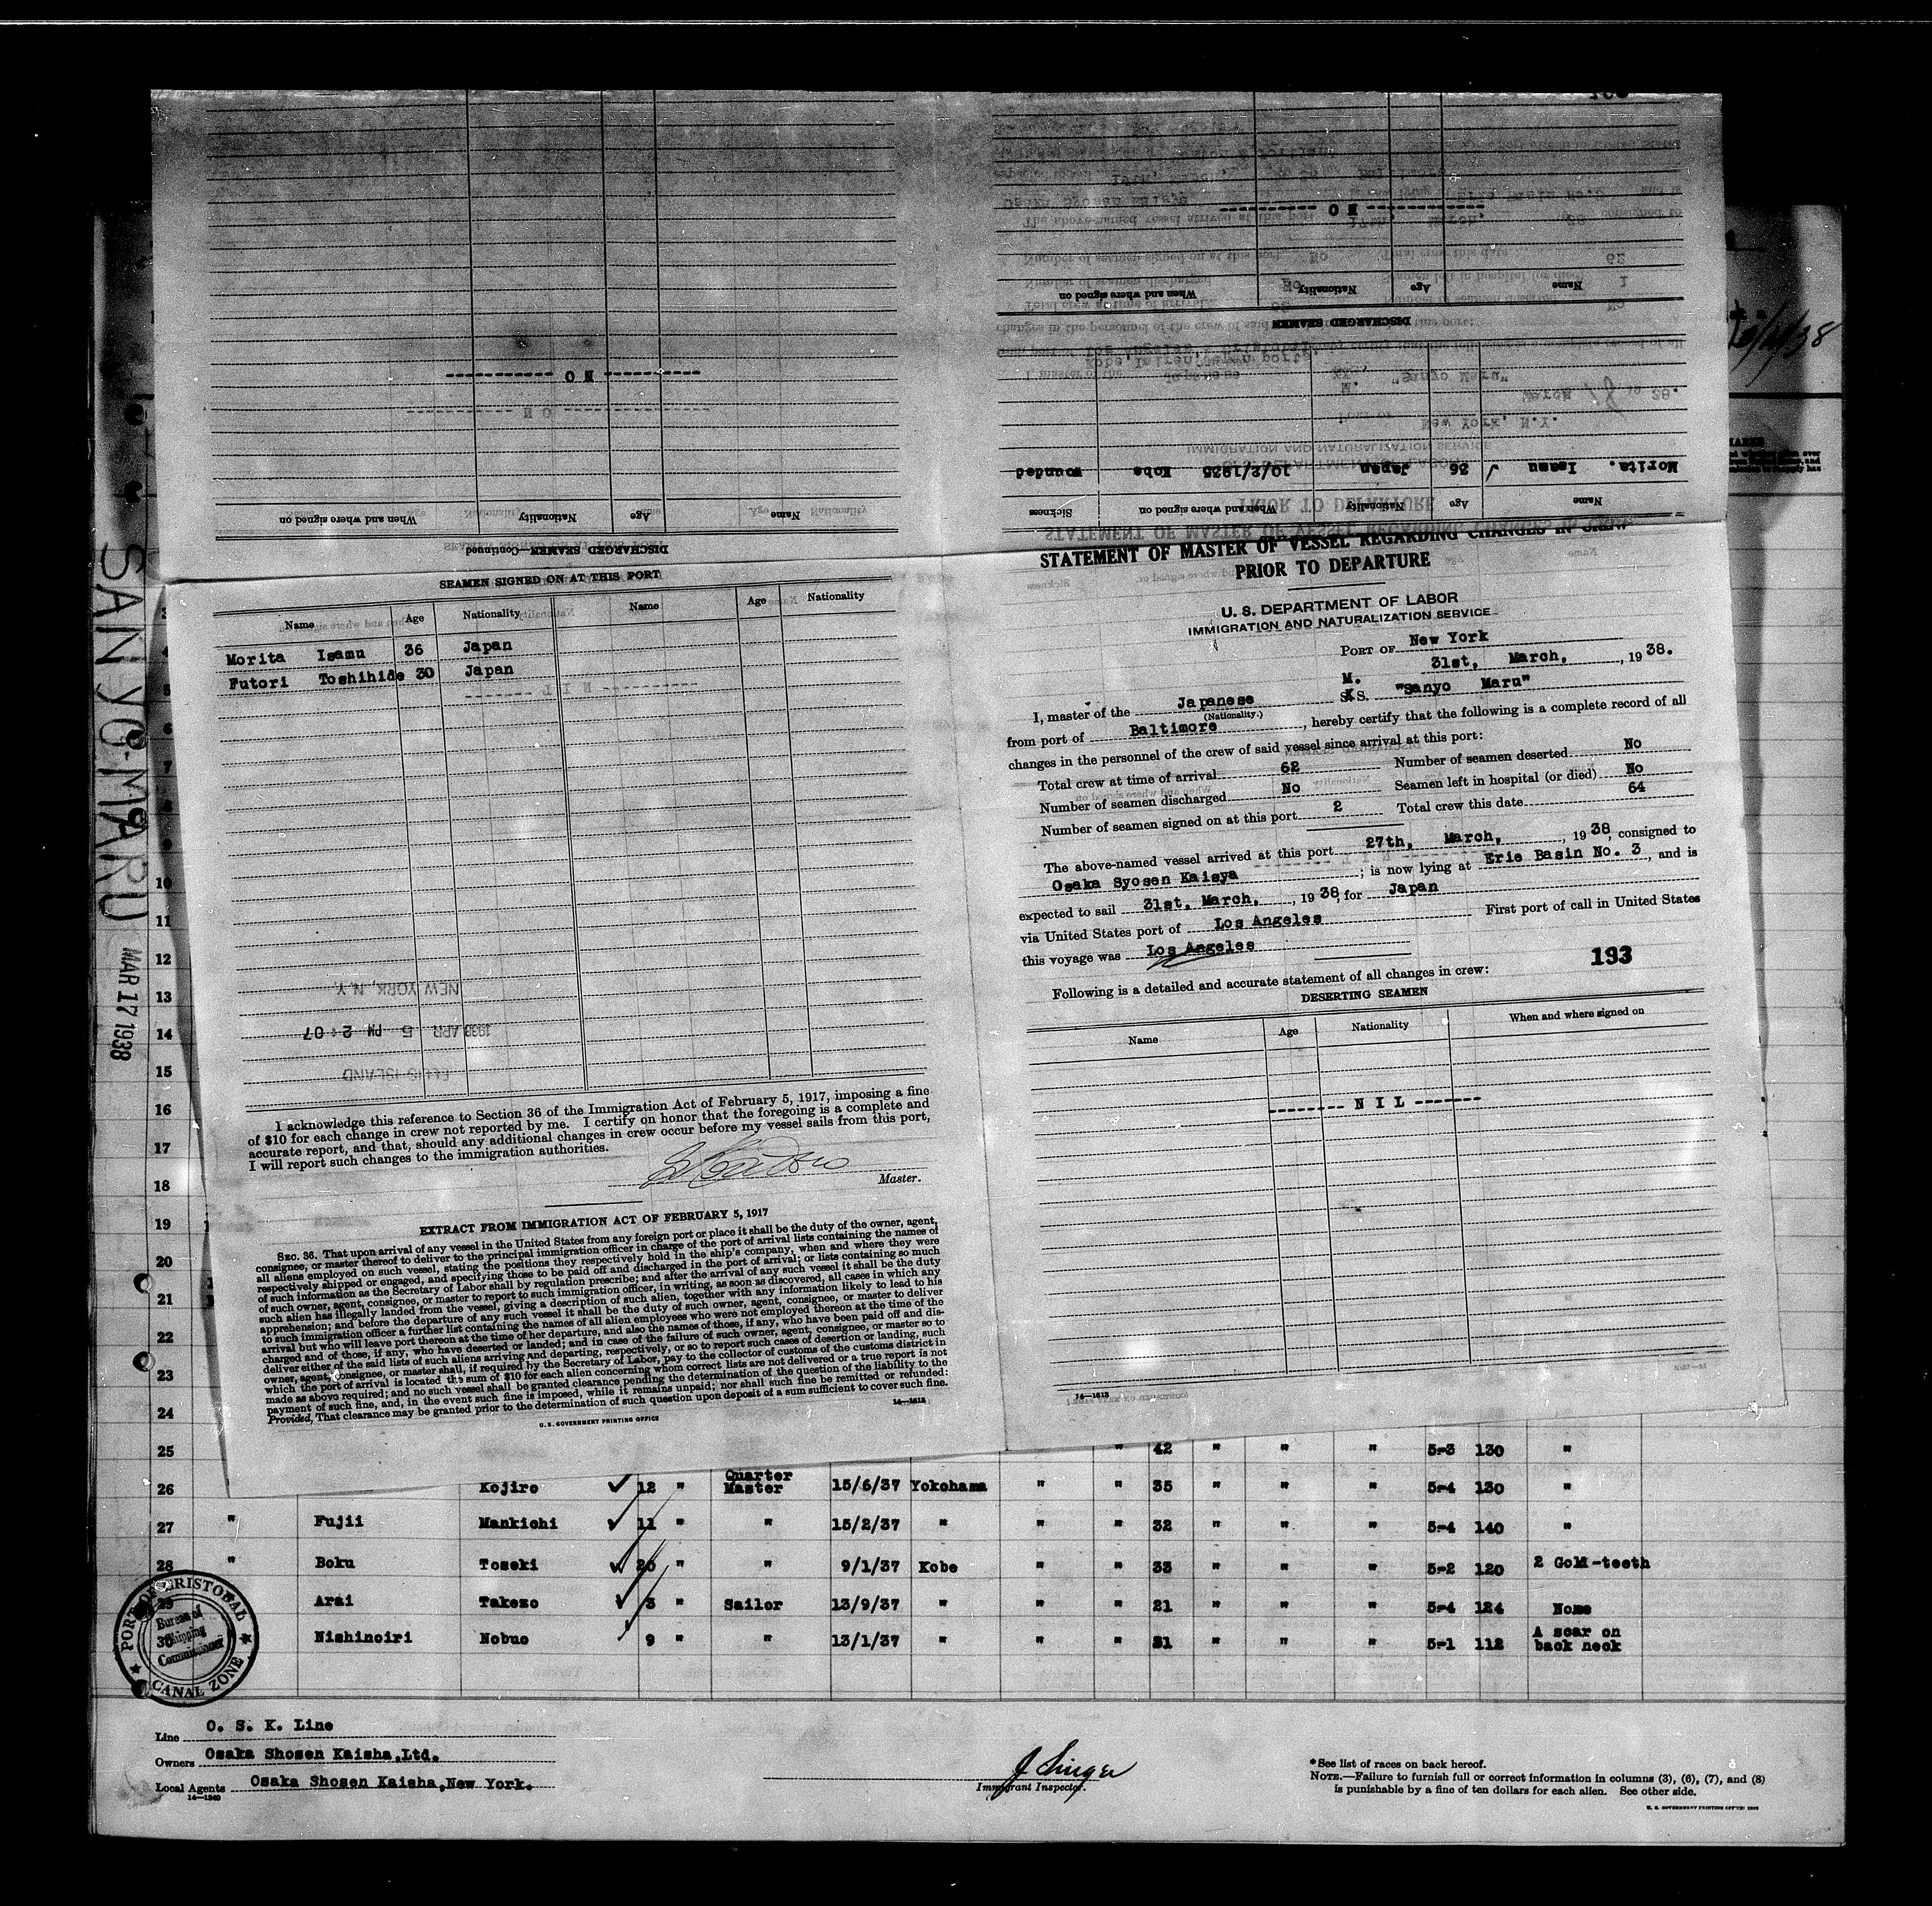 DISCHARGED SEAMEN—Continued
Name Age Nationality When and where signed on
----------- N O -----------
----------- N O -----------
DISCHARGED SEAMEN
Name Age Nationality When and where signed on
----------- N O -----------
Name Age When and where signed on Sickness
Morita. Isamu 36 Japan 10/2/1935 Kobe wounded
SAN YO MARU
MAR 17 1938
SEAMEN SIGNED ON AT THIS PORT
Name Age Nationality Name Age Nationality
Morita Isamu 36 Japan
Futori Toshihide 30 Japan
------- N I L -------
NEW YORK, N.Y.
1938 APR 5 PM 2:07
ELLIS ISLAND
I acknowledge this reference to Section 36 of the Immigration Act of February 5, 1917, imposing a fine
of $10 for each change in crew not reported by me. I certify on honor that the foregoing is a complete and
accurate report, and that, should any additional changes in crew occur before my vessel sails from this port,
I will report such changes to the immigration authorities.
Master.
EXTRACT FROM IMMIGRATION ACT OF FEBRUARY 5, 1917
SEC. 36. That upon arrival of any vessel in the United States from any foreign port or place it shall be the duty of the owner, agent,
consignee, or master thereof to deliver to the principal immigration officer in charge of the port of arrival lists containing the names of
all aliens employed on such vessel, stating the positions they respectively hold in the ship's company, when and where they were
respectively shipped or engaged, and specifying those to be paid off and discharged in the port of arrival; or lists containing so much
of such information as the Secretary of Labor shall by regulation prescribe; and after the arrival of any such vessel it shall be the duty
of such owner, agent, consignee, or master to report to such immigration officer, in writing, as soon as discovered, all cases in which any
such alien has illegally landed from the vessel, giving a description of such alien, together with any information likely to lead to his
apprehension; and before the departure of any such vessel it shall be the duty of such owner, agent, consignee, or master to deliver
to such immigration officer a further list containing the names of all alien employees who were not employed thereon at the time of the
arrival but who will leave port thereon at the time of her departure, and also the names of those, if any, who have been paid off and dis-
charged and of those, if any, who have deserted or landed; and in case of the failure of such owner, agent, consignee, or master so to
deliver either of the said lists of such aliens arriving and departing, respectively, or so to report such cases of desertion or landing, such
owner, agent, consignee, or master shall, if required by the Secretary of Labor, pay to the collector of customs of the customs district in
which the port of arrival is located the sum of $10 for each alien concerning whom correct lists are not delivered or a true report is not
made as above required; and no such vessel shall be granted clearance pending the determination of the question of the liability to the
payment of such fine, and, in the event such fine is imposed, while it remains unpaid; nor shall such fine be remitted or refunded:
Provided, That clearance may be granted prior to the determination of such question upon deposit of a sum sufficient to cover such fine.
U. S. GOVERNMENT PRINTING OFFICE 14—1613
STATEMENT OF MASTER OF VESSEL REGARDING CHANGES IN CREW
PRIOR TO DEPARTURE
U. S. DEPARTMENT OF LABOR
IMMIGRATION AND NATURALIZATION SERVICE
PORT OF New York
31st, March, , 1938.
I, master of the Japanese M. S.S. "Sanyo Maru"
(Nationality.)
from port of Baltimore, hereby certify that the following is a complete record of all
changes in the personnel of the crew of said vessel since arrival at this port:
Total crew at time of arrival 62 Number of seamen deserted No
Number of seamen discharged No Seamen left in hospital (or died) No
Number of seamen signed on at this port 2 Total crew this date 64
The above-named vessel arrived at this port 27th, March, , 1938, consigned to
Osaka Syosen Kaisya ; is now lying at Erie Basin No. 3, and is
expected to sail 31st, March, , 1938, for Japan
via United States port of Los Angeles First port of call in United States
this voyage was Los Angeles
193
Following is a detailed and accurate statement of all changes in crew:
DESERTING SEAMEN
Name Age Nationality When and where signed on
-------- N I L -------
14—1613
3
4
5
6
7
8
9
10
11
12
13
14
15
16
17
18
19
20
21
22
23
24
25 " 42 " " " 5-3 130 "
26 Kojiro 12 " Quarter Master 15/6/37 Yokohama " " 35 " " " 5-4 130 "
27 " Fujii Mankichi 11 " " 15/2/37 " " " 32 " " " 5-4 140 "
28 " Boku Toseki 20 " " 9/1/37 Kobe " " 33 " " " 5-2 120 2 Gold-teeth
29 Arai Takezo 3 " Sailor 13/9/37 " " " 21 " " " 5-4 124 None
30 Nishinoiri Nobuo 9 " " 13/1/37 " " " 31 " " " 5-1 112 A scar on back neck
PORT OF CRISTOBAL
Bureau of
Shipping
Commissioner
CANAL ZONE
Line O. S. K. Line
Owners Osaka Shosen Kaisha,Ltd.
Local Agents Osaka Shosen Kaisha,New York.
14—1240
J Singer
Immigrant Inspector.
*See list of races on back hereof.
NOTE.—Failure to furnish full or correct information in columns (3), (6), (7), and (8)
is punishable by a fine of ten dollars for each alien. See other side.